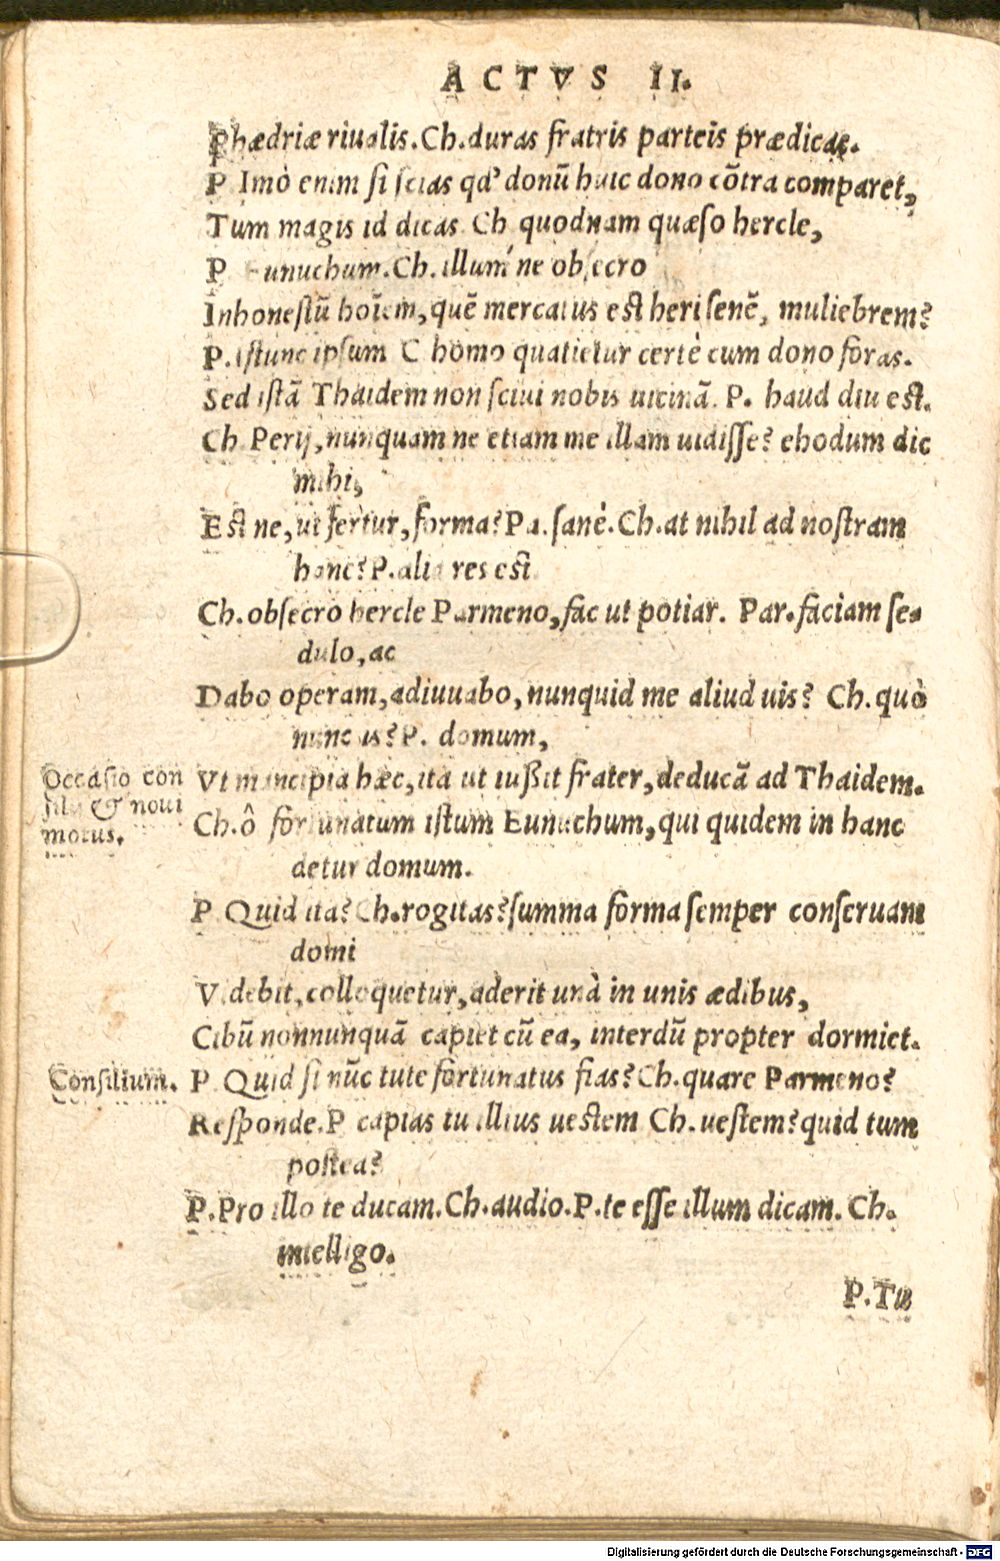 ACTVS II.
Phædriæ riualis. Ch. duras fratris parteis prædicas.
P Imò enim si scias qd' donũ huic dono cõtra comparet,
Tum magis id dicas Ch quodnam quæso hercle,
P Eunuchum. Ch. illum' ne obsecro
Inhonestũ hoĩem, quẽ mercatus est heri senẽ, muliebrem?
P. istunc ipsum C homo quatietur certè cum dono foras.
Sed istã Thaidem non sciui nobis uicinã. P. haud diu est.
Ch Perij, nunquam ne etiam me illam uidisse? ehodum dic
mihi,
Est ne, ut fertur, forma? Pa. sanè. Ch. at nihil ad nostram
hanc? P. alia res est
Ch. obsecro hercle Parmeno, fac ut potiar. Par. faciam se-
dulo, ac
Dabo operam, adiuuabo, nunquid me aliud uis? Ch. quò
nunc is? P. domum,
Occasio con
silij & noui
motus.
Vt mancipia hæc, ita ut iußit frater, deducã ad Thaidem.
Ch. ô fortunatum istum Eunuchum, qui quidem in hanc
detur domum.
P Quid ita? Ch. rogitas? summa forma semper conseruam
domi
Videbit, colloquetur, aderit unà in unis ædibus,
Cibũ nonnunquã capiet cũ ea, interdũ propter dormiet.
Consilium.
P Quid si nũc tute fortunatus fias? Ch. quare Parmeno?
Responde. P capias tu illius uestem Ch. uestem? quid tum
postea?
P. Pro illo te ducam. Ch. audio. P. te esse illum dicam. Ch.
intelligo.
P. Tu
Digitalisierung gefördert durch die Deutsche Forschungsgemeinschaft - DFG